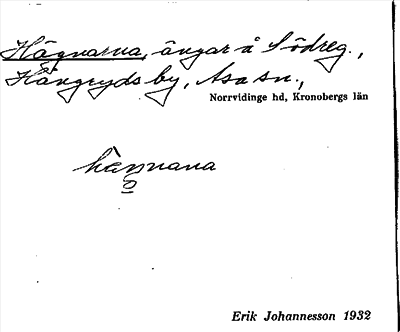 Hägnarna, ängar å Södreg.,
Hångryds by, Asa sn.,
Norrvidinge hd, Kronobergs län
hæŋnana
Erik Johannesson 1932